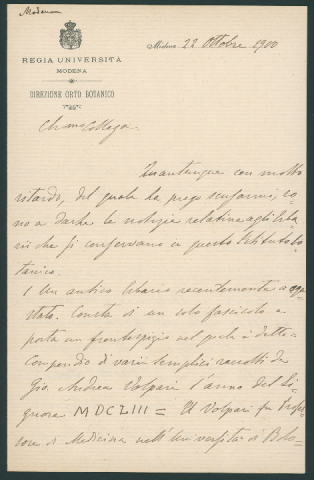 Modena
REGIA UNIVERSITÀ
MODENA
DIREZIONE ORTO BOTANICO
Modena 22 Ottobre 1900
Ch.mo Collega
Quantunque con molto
ritardo, del quale la prego scusarmi, so-
no a darle le notizie relative agli Erba-
rii che si conservano in questo Istituto bo-
tanico.
1 Un antico Erbario recentemente acqui-
stato. Consta di un solo fascicolo e
porta un frontespizio nel quale è detto=
Compendio di varii semplici raccolti da
Gio. Andrea Volpari l'anno del Si-
gnore MDCLIII = Il Volpari fu Profes-
sore di Medicina nell'Università di Bolo-